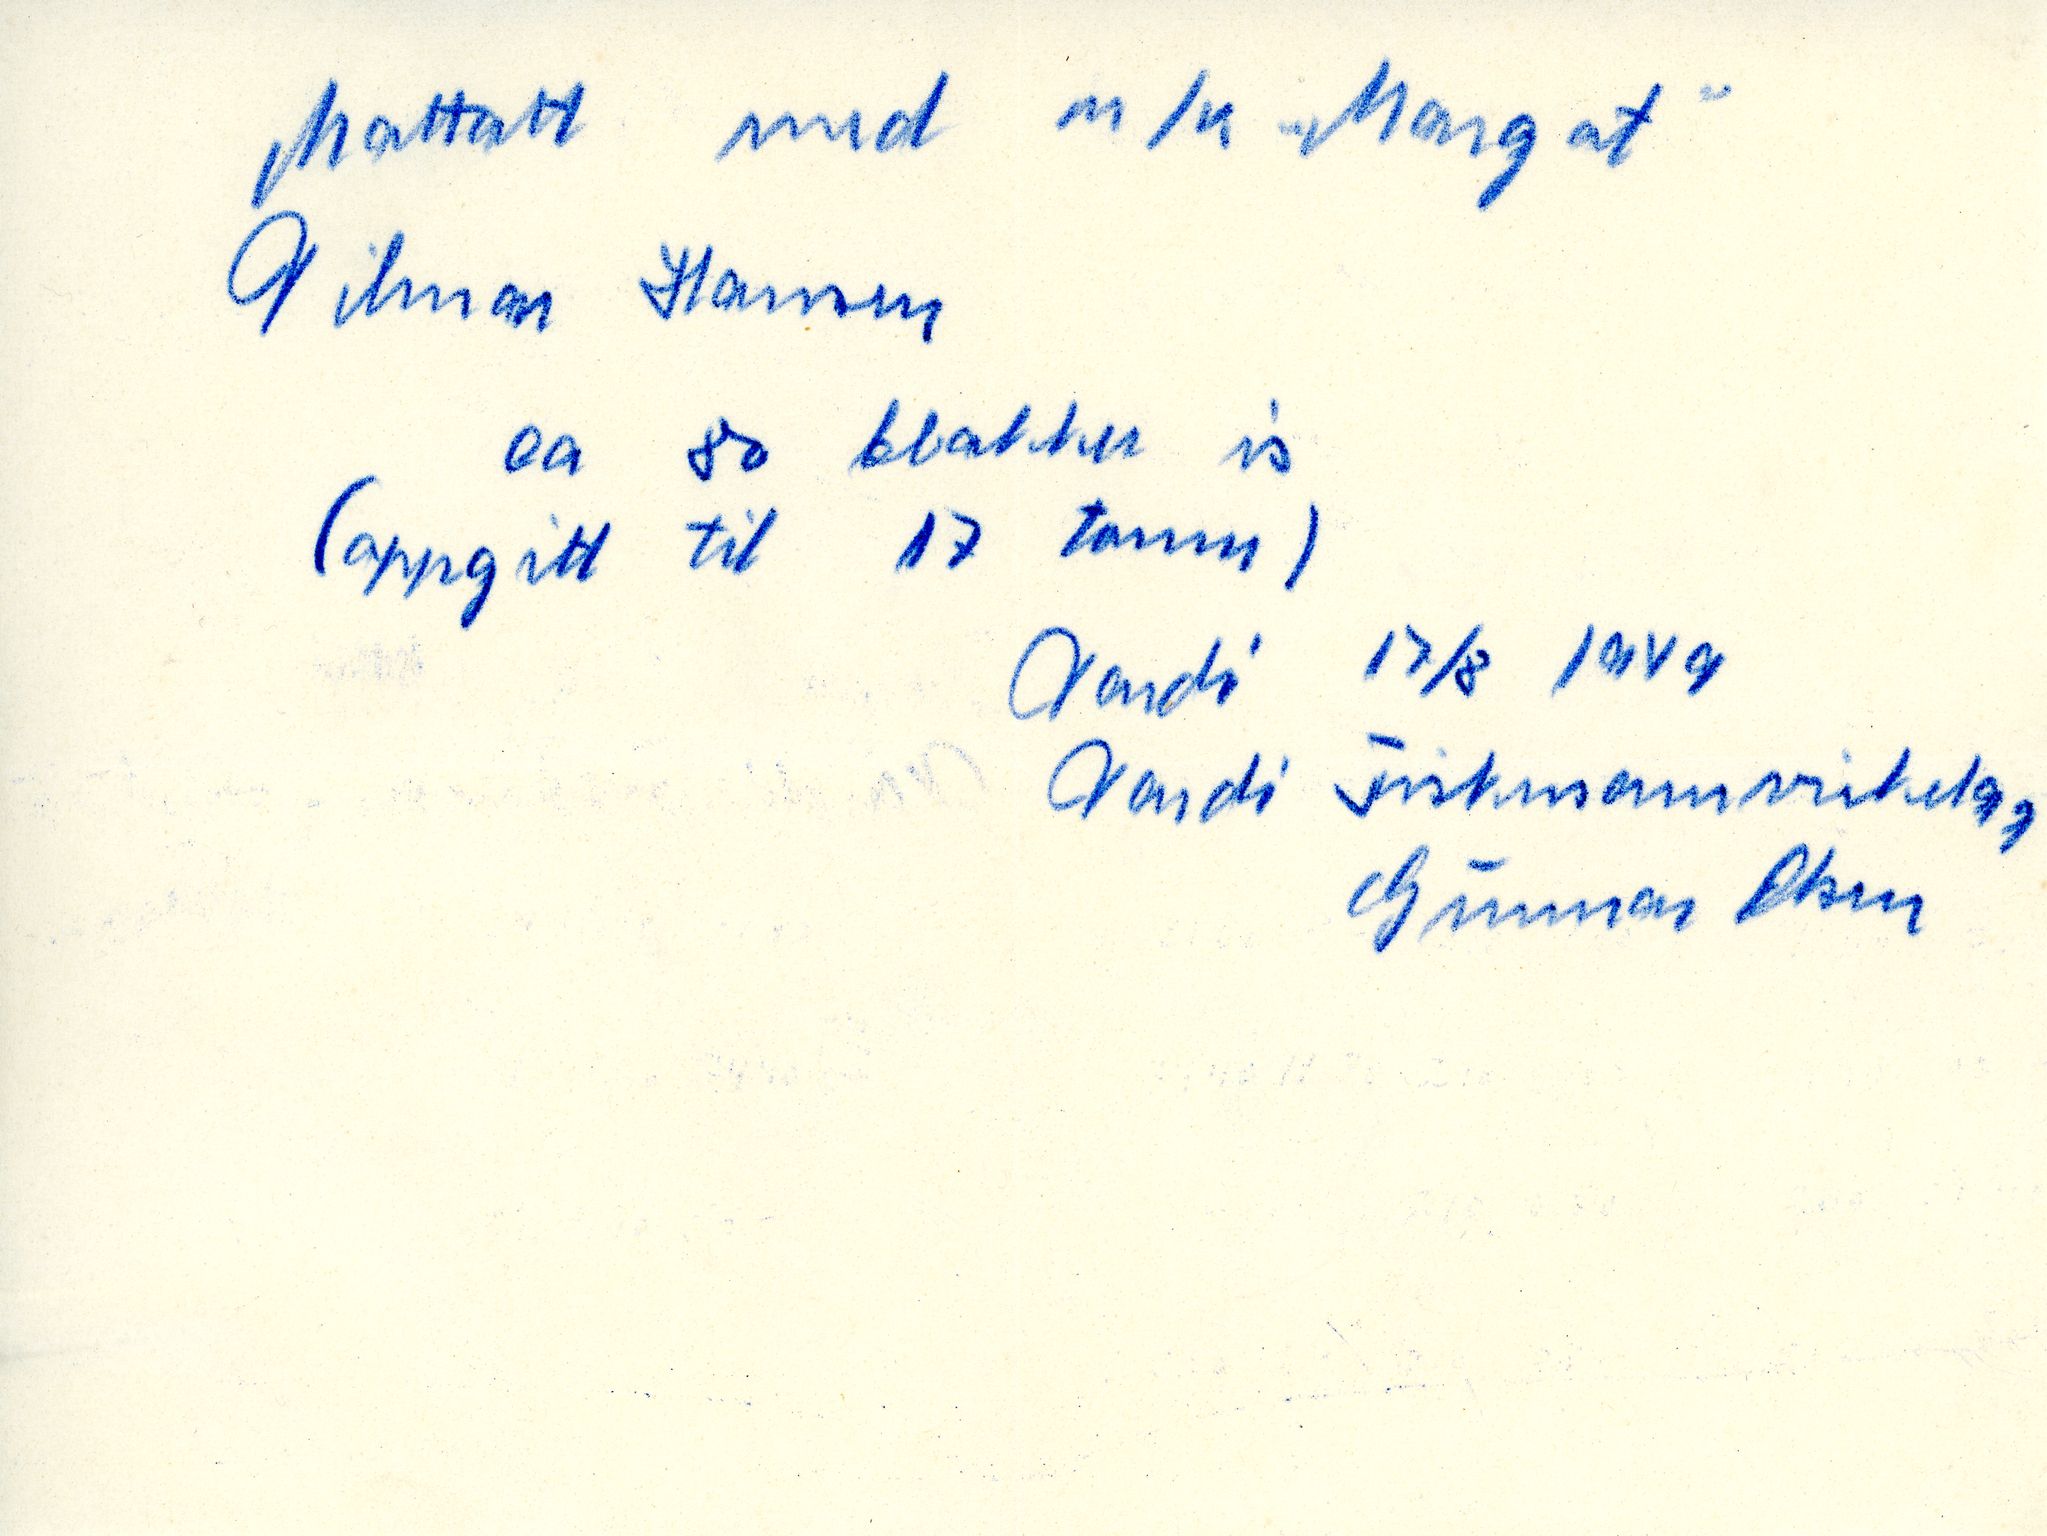 Mottatt med m/k "Margot"
Vilmar Hansen
ca 80 blokker is
(oppgitt til 17 tonn)
Vardö 17/8 1949
Vardö Fiskersamvirkelag
Gunnar Olsen